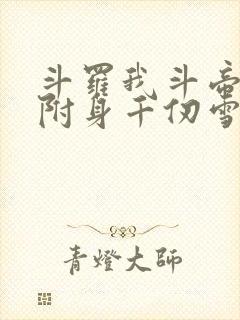 斗羅我斗帝
附身千仞雪
青燈大師